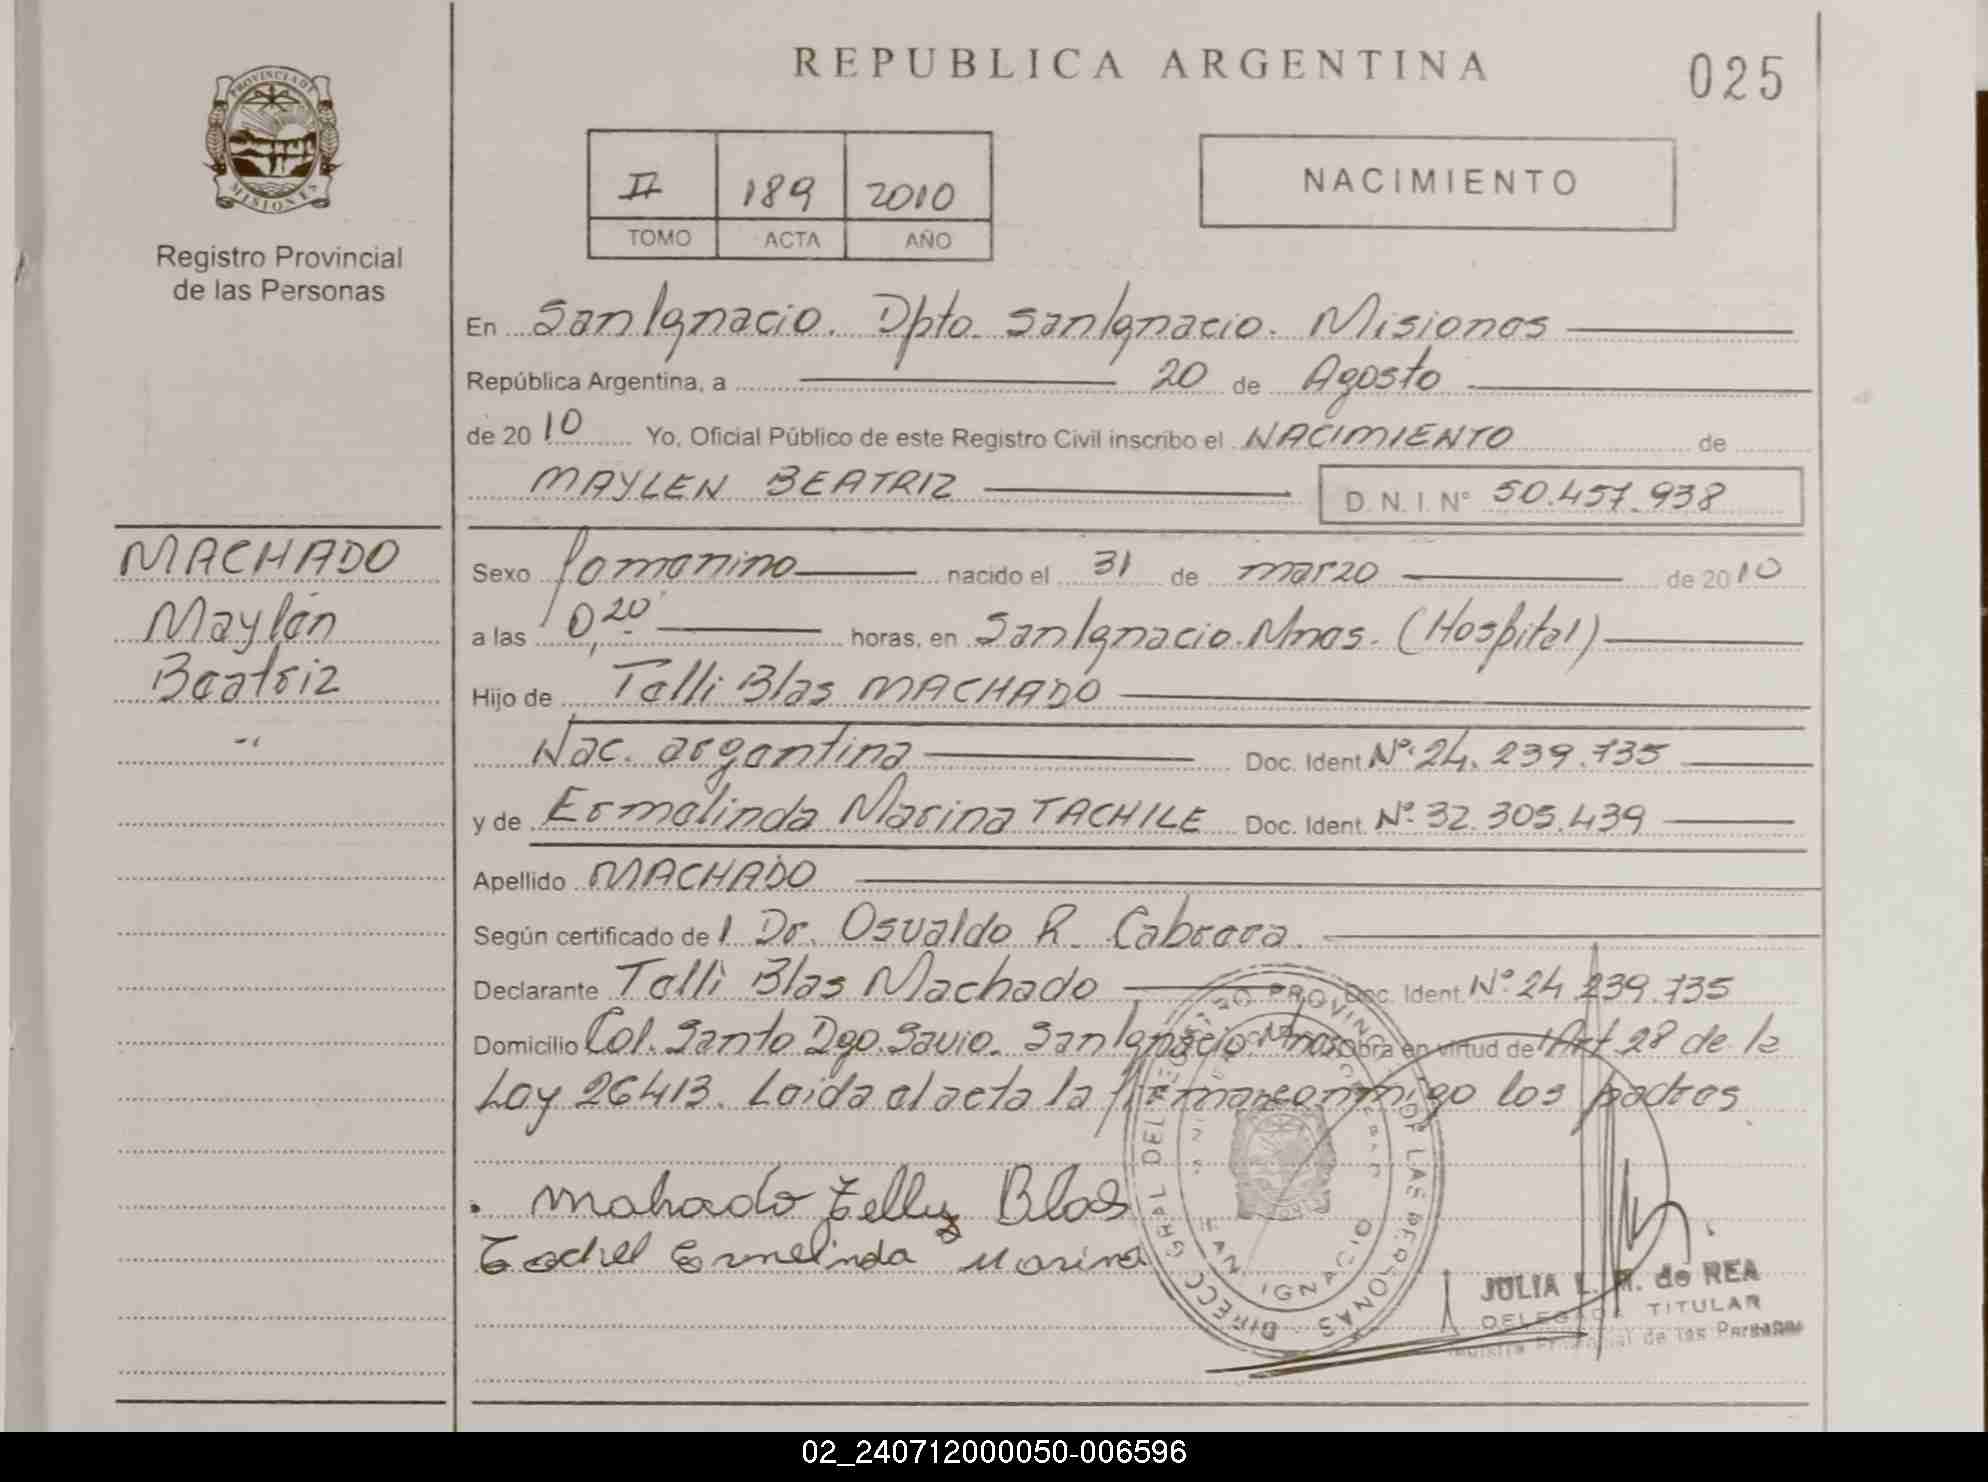 REPUBLICA ARGENTINA
025
PROVINCIA DE
MISIONES
Registro Provincial
de las Personas
II 189 2010
TOMO ACTA AÑO
NACIMIENTO
En San Ignacio. Dpto. San Ignacio. Misiones
República Argentina, a 20 de Agosto
de 2010 Yo, Oficial Público de este Registro Civil inscribo el NACIMIENTO de
MAYLEN BEATRIZ D. N. I. N° 50.457.938
MACHADO
Maylén
Beatriz
Sexo femenino nacido el 31 de marzo de 2010
a las 0,20 horas, en San Ignacio. Mnes. (Hospital)
Hijo de Telli Blas MACHADO
Nac. argentina Doc. Ident. N° 24.239.735
y de Ermelinda Marina TACHILE Doc. Ident. N° 32.305.439
Apellido MACHADO
Según certificado del Dr. Osvaldo R. Cabrera.
Declarante Telli Blas Machado Doc. Ident. N° 24.239.735
Domicilio Col. Santo Dgo. Savio. San Ignacio. Mnes. Obra en virtud del Art. 28 de la
Ley 26413. Leida el acta la firman conmigo los padres
Mahado Telly Blas
Ermelinda Marina
DIRECC GRAL DEL REGISTRO PROVINCIAL DE LAS PERSONAS
SAN IGNACIO
JULIA L. M. de REA
DELEGADA TITULAR
Registro Provincial de las Personas
02_240712000050-006596